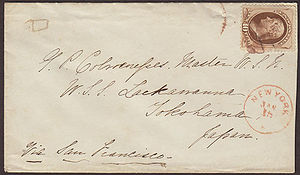 G. P. Colvocoresses, Master U.S.N.
U.S.S. Lackawanna
Yokohama
Japan.
Via San Francisco.
NEW YORK
JAN